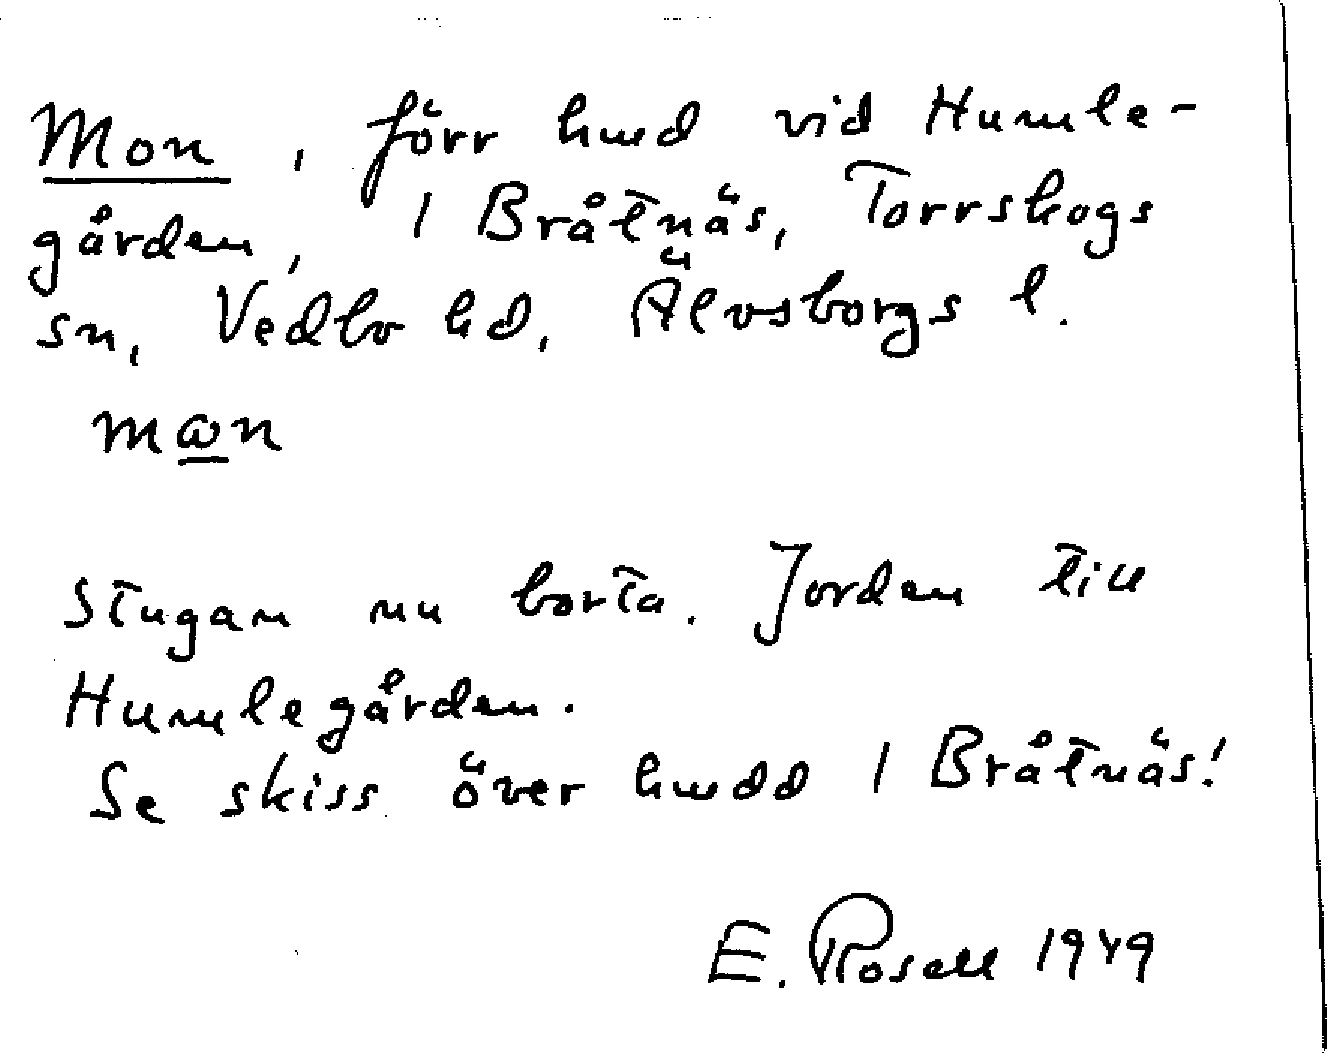 Mon, förr hmd vid Humle-
gården, 1 Bråtnäs, Torrskogs
sn, Vedbo hd, Älvsborgs l.
mꞷn
Stugan nu borta. Jorden till
Humlegården.
Se skiss över hmdd 1 Bråtnäs!
E. Rosell 1949